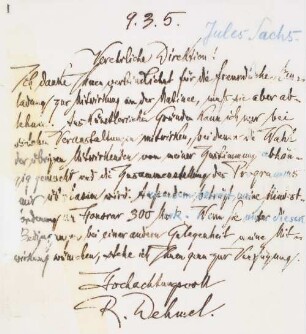 9. 3. 5.
Jules Sachs.
Verehrliche Direktion!
Ich danke Ihnen verbindlichst für die freundliche Ein-
ladung zur Mitwirkung an der Matinee, muß sie aber ab-
lehnen. Aus künstlerischen Gründen kann ich nur bei
solchen Veranstaltungen mitwirken, bei denen die Wahl
der übrigen Mitwirkenden von meiner Zustimmung abhän-
gig gemacht und die Zusammenstellung des Programms
mir überlassen wird. Ausserdem beträgt meine Mindest-
forderung an Honorar 300 Mark. Wenn Sie unter diesen
Bedingungen bei einer andern Gelegenheit meine Mit-
wirkung wünschen, stehe ich Ihnen gern zur Verfügung.
Hochachtungsvoll
R. Dehmel.